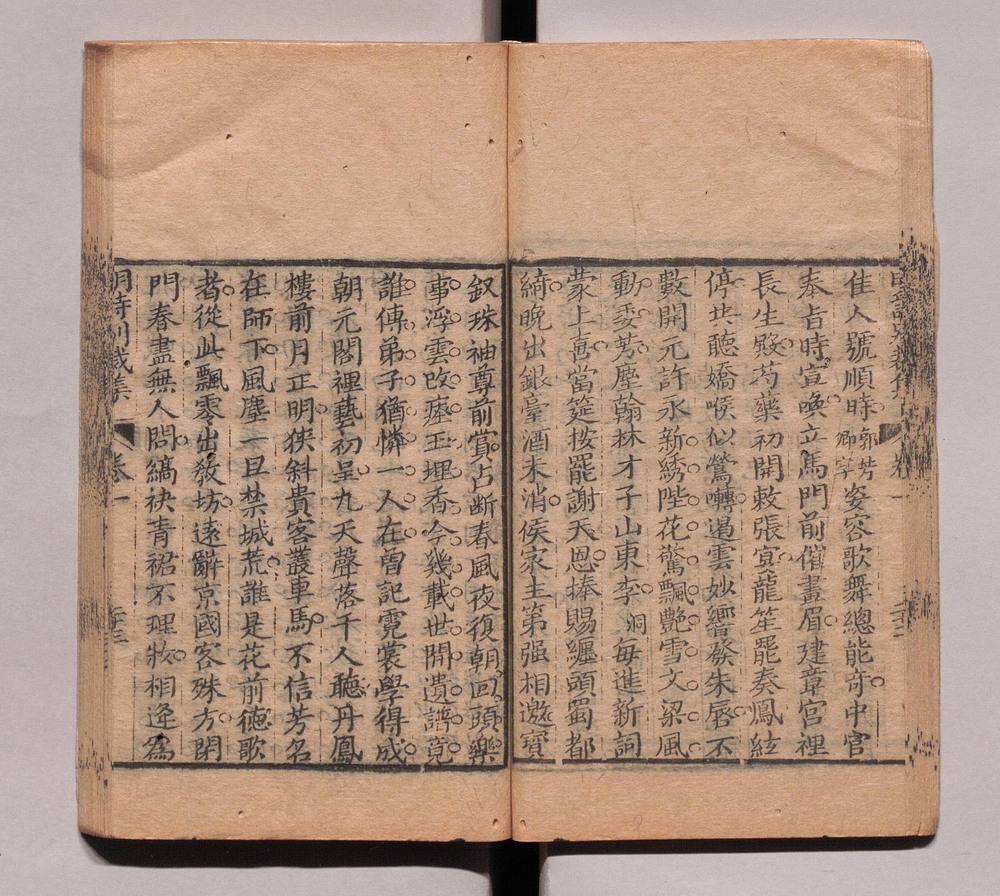 佳人號順時郭芳卿字姿容歌舞總能奇中官
奉旨時宣喚立馬門前催畫眉建章宮裡
長生殿芍藥初開敕張宴龍笙罷奏鳳絃
停共聽嬌喉似鶯囀遏雲妙響發朱唇不
數開元許永新綉陛花驚飄艷雪文梁風
動委芳塵翰林才子山東李洞每進新詞
蒙上喜當筵按罷謝天恩捧賜纏頭蜀都
綺晚出銀臺酒未消侯家主第强相邀寳
釵珠袖尊前賞占断春風夜復朝回頭樂
事浮雲改瘞玉埋香今幾載世間遺譜竟
誰傳弟子猶憐一人在曾記霓裳學得成
朝元閣裡藝初呈九天聲落千人聽丹鳳
樓前月正明狹斜貴客叢車馬不信芳名
在師下風塵一旦禁城荒誰是花前聽歌
者從此飄零出敎坊遠辭京國客殊方閉
門春盡無人問縞袂青裙不理妝相逢為
明詩別裁集 卷一